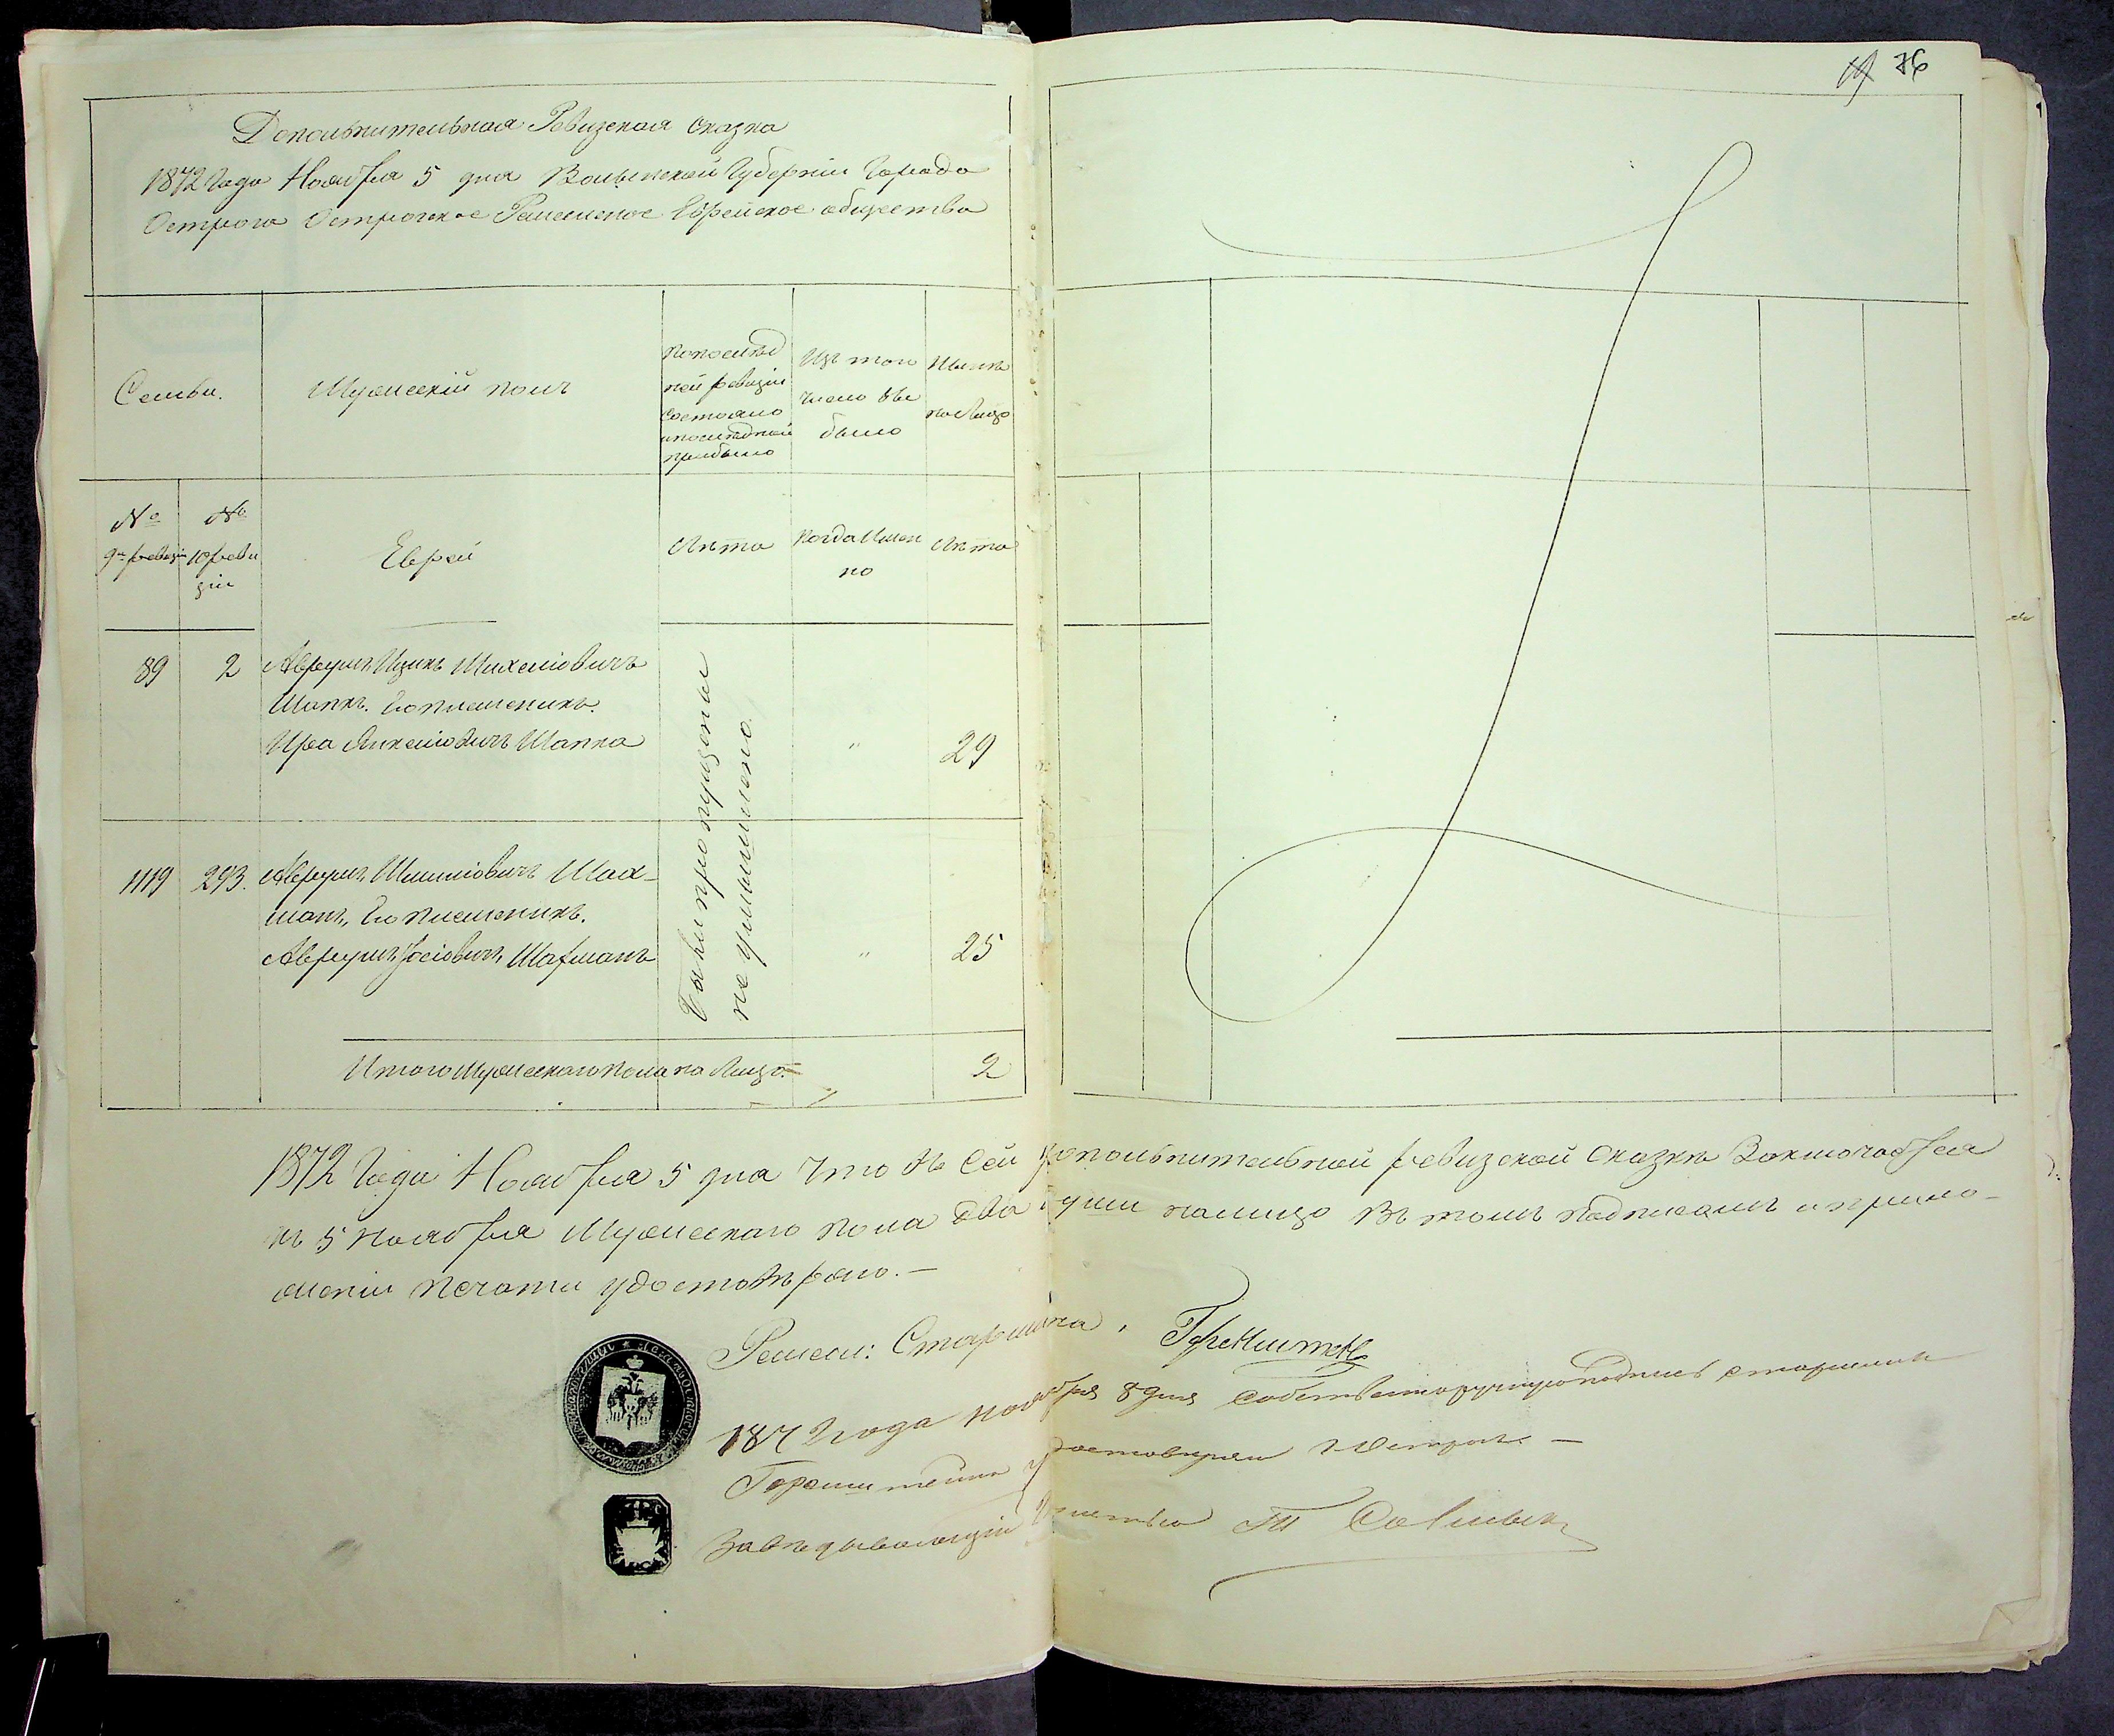 19 76
Дополнительная Ревизская сказка
1872 Года Ноября 5 дня Волынской Губерніи Города
Острога Острогское Ремесленое Еврейское общество
Семьи.
Мужескій полъ
По послѣд
ней ревизіи
состояло
и послѣ оной
прибыло
Изъ того
числа вы
было
Нынѣ
на Лицо
№ 9й ревизіи
№ 10 реви
зіи
Еврей
Лѣта
Когда Имен
но
Лѣта
89 2 Аврумъ Ицикъ Михелiовичъ
Шапка. Его племеникъ.
Ицка Янкелiовичъ Шапка " 29
1119 293. Аврумъ Шмулiовичъ Шах-
манъ, Его племеникъ.
Аврумъ Iосiовичъ Шахманъ " 25
Были пропущены
не умышлено.
Итого Мужескаго пола на Лицо 2
1872 Года Ноября 5 дня Что въ сей дополнительной ревизской сказкѣ Заключается
къ 5 Ноября Мужескаго пола два души налицо въ томъ подписомъ и прило-
женіи печати удостовѣряю.—
Ремесл: Старшина,
1872 года ноября 8 дня собственноручную подпись старшины
Горенштейна удостоверяю г Острогъ —
Завѣдывающій